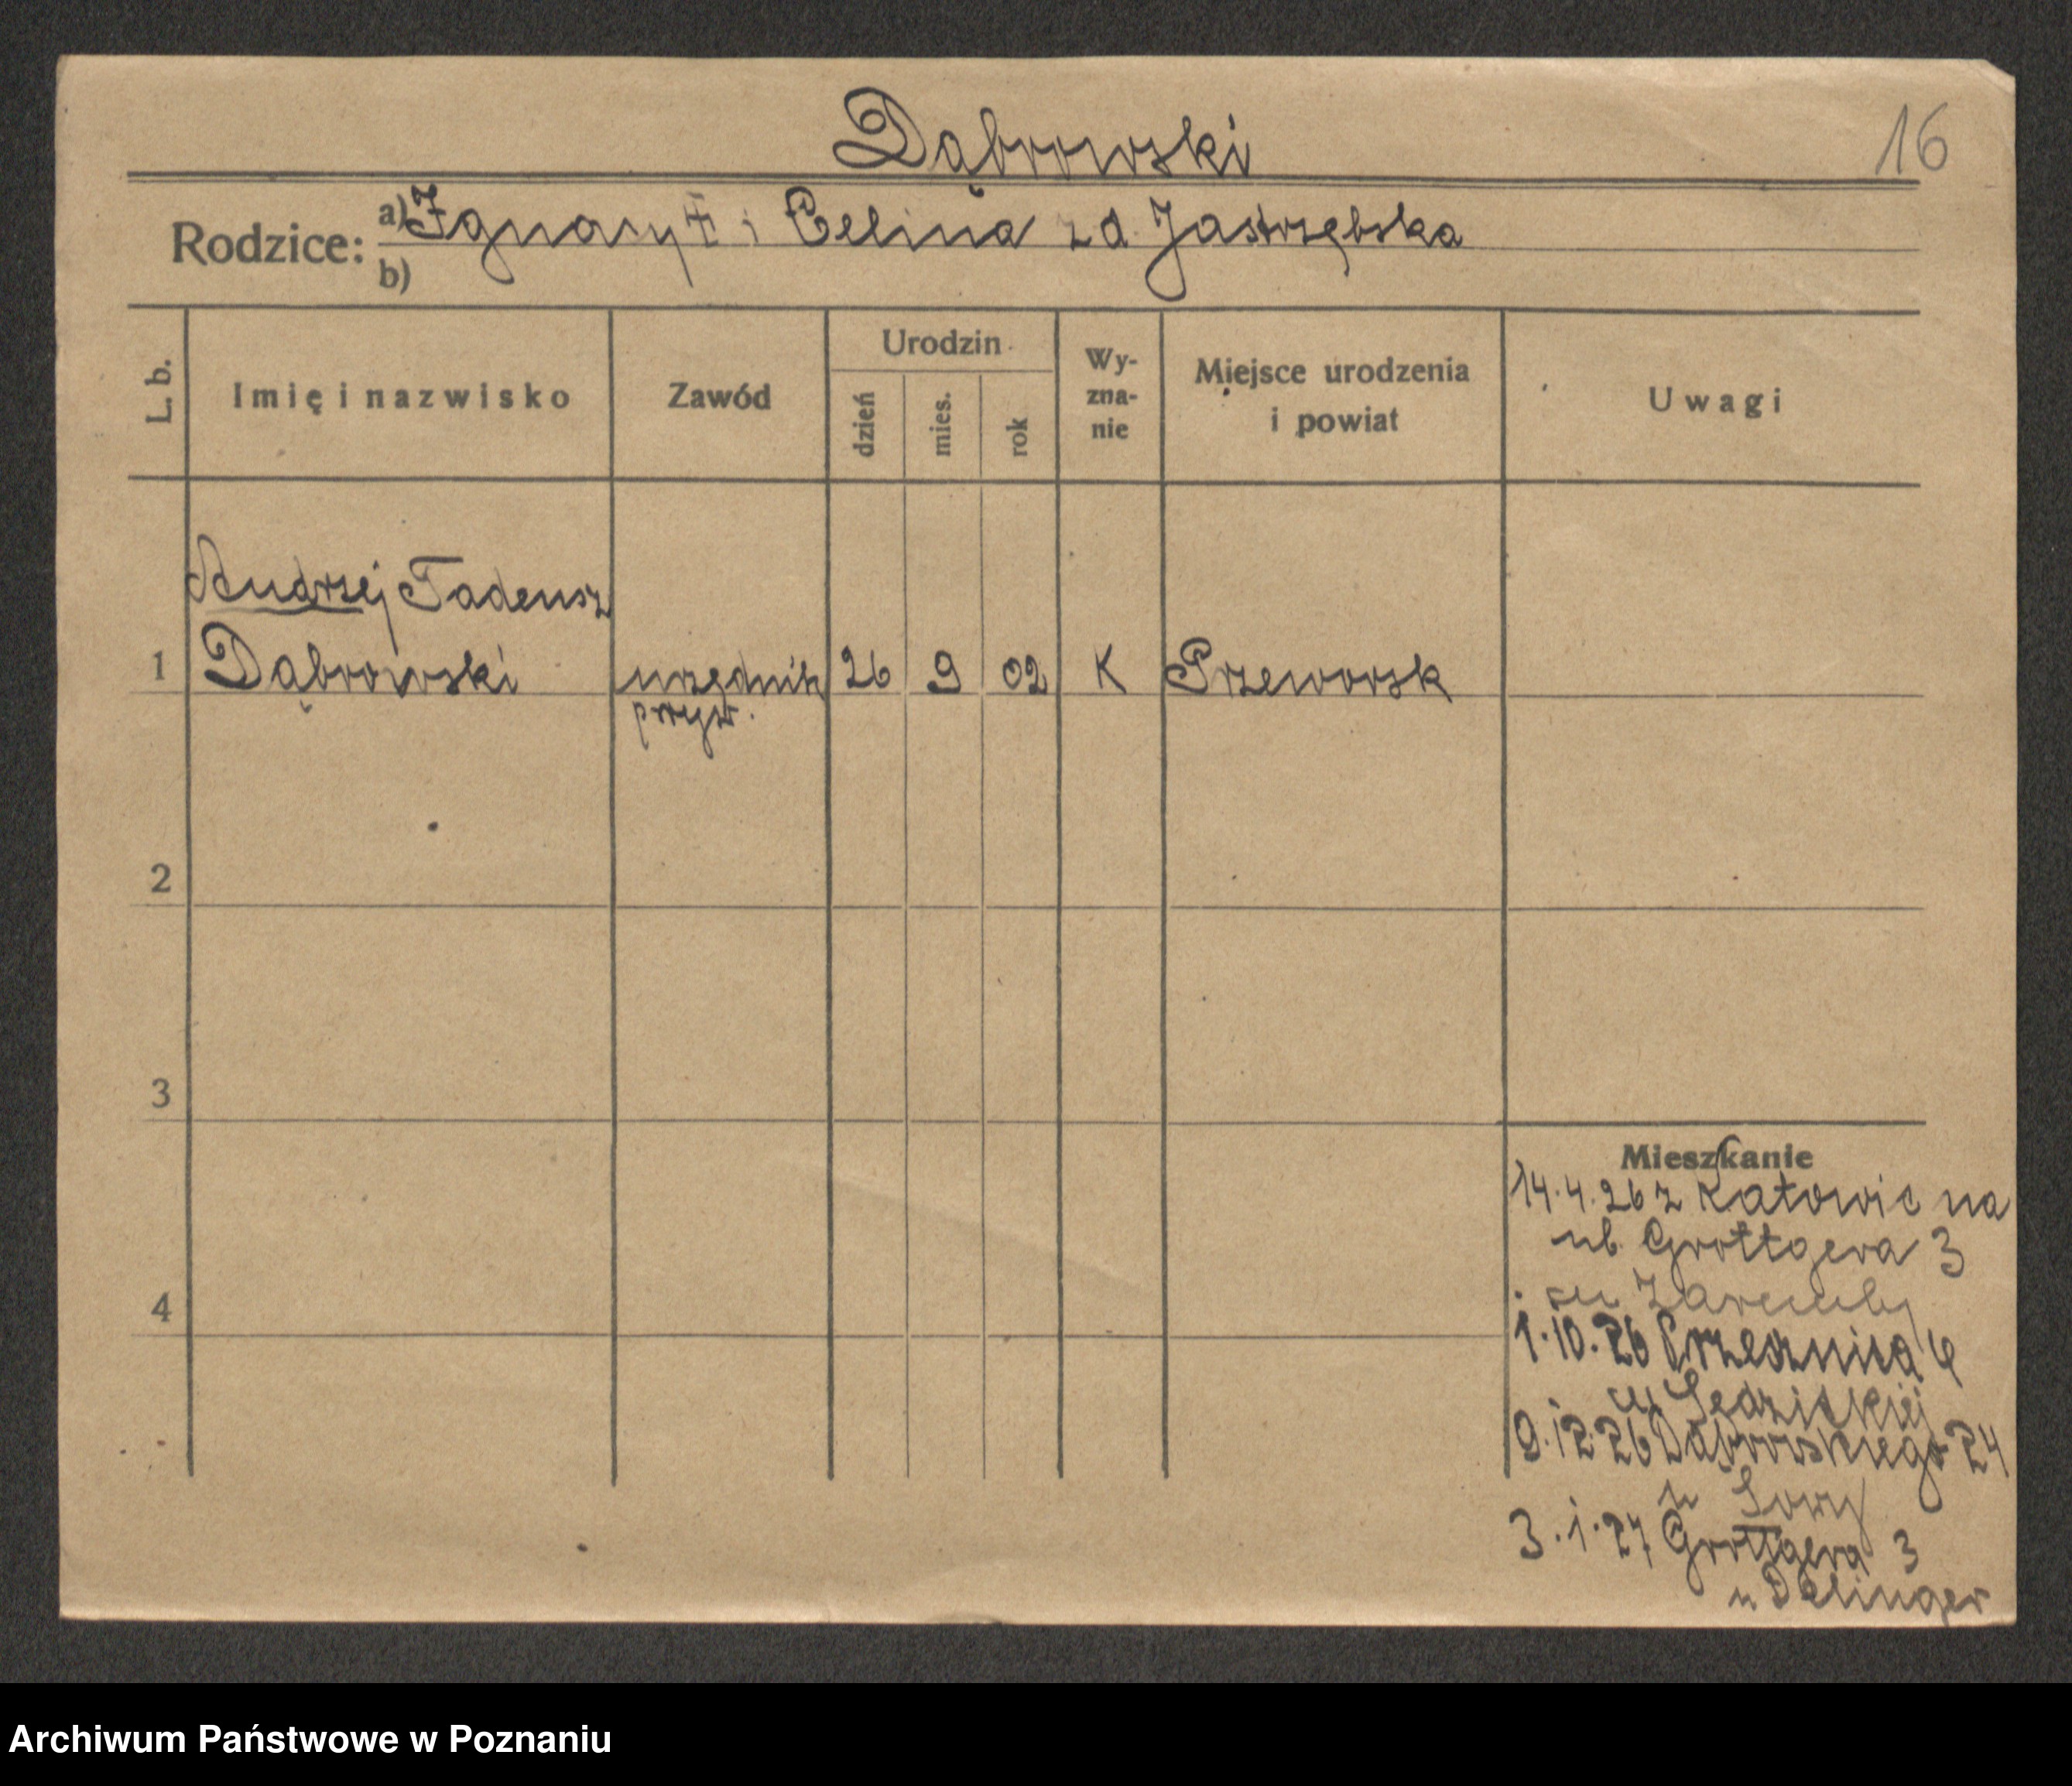 Dąbrowski
16
Rodzice: a) Ignacy ‡ i Celina z d. Jastrzębska
b)
L. b.
Imię i nazwisko
Zawód
Urodzin
dzień
mies.
rok
Wy-
zna-
nie
Miejsce urodzenia
i powiat
Uwagi
Andrzej Tadeusz
1 Dąbrowski urzędnik 26 9 02 K Przeworsk
pryw.
2
3
4
Mieszkanie
14.4.26 z Katowic na
ul. Grottgera 3
u Zaremby
1.10.26 Przecznica 4
u
9.12.26 Dąbrowskiego 24
u Sowy
3.1.27 Grottgera 3
u Delinger
Archiwum Państwowe w Poznaniu